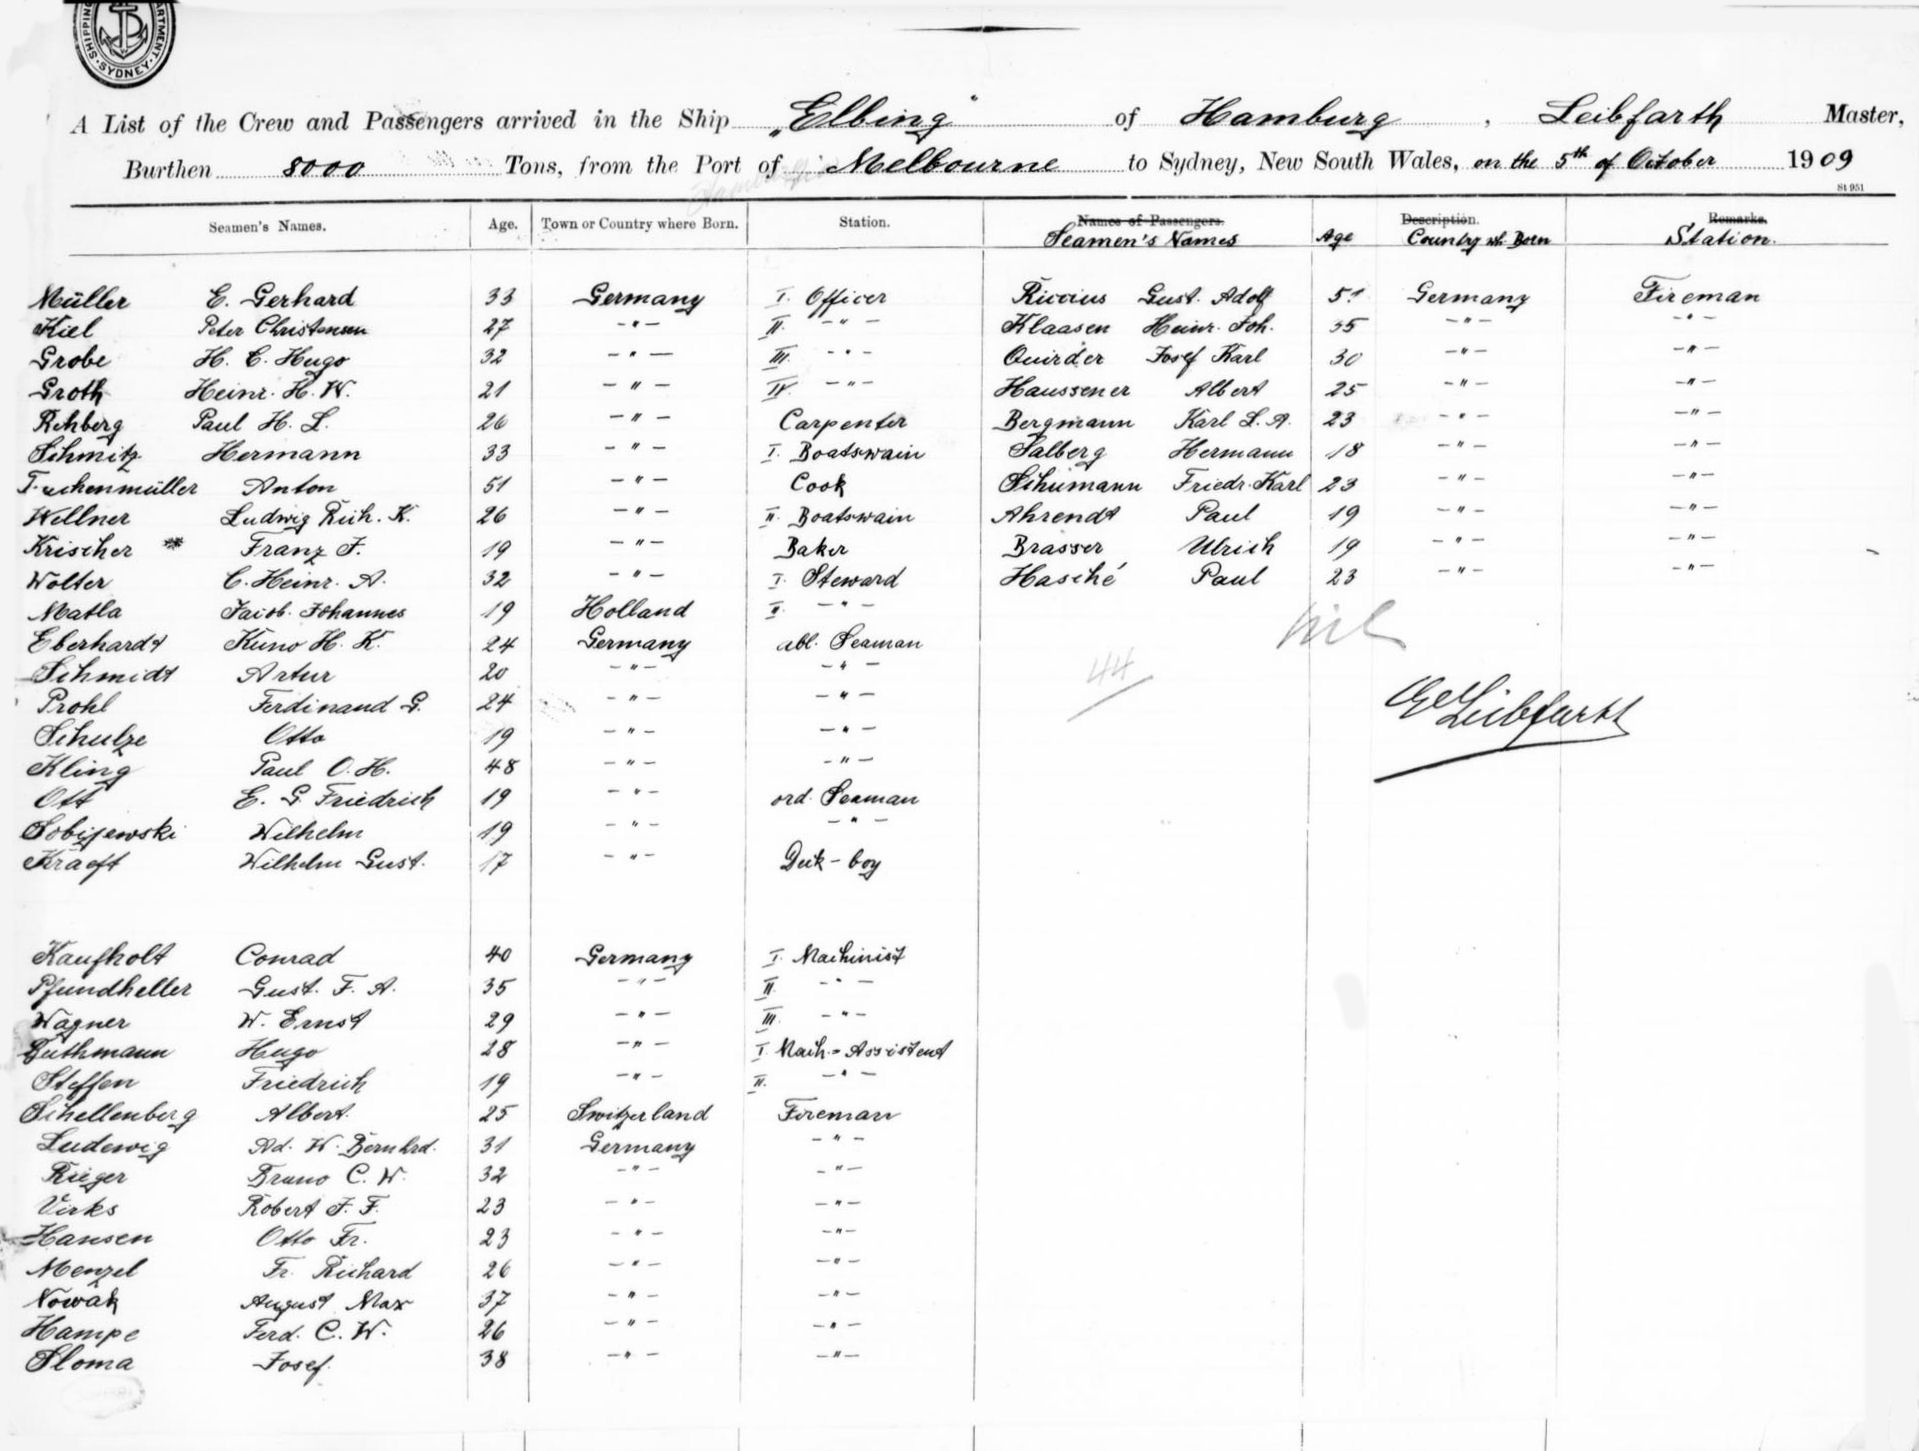 SHIPPING DEPARTMENT SYDNEY
A List of the Crew and Passengers arrived in the Ship „Elbing" of Hamburg, Leibfarth Master,
Burthen 8000 Tons, from the Port of Melbourne to Sydney, New South Wales, on the 5th of October 1909
St 951
Seamen's Names. Age. Town or Country where Born. Station. Names of Passengers. Description. Remarks.
Seamen's Names Age Country wh. Born Station.
Müller E. Gerhard 33 Germany I. Officer Riccius Gust. Adolf 51 Germany Fireman
Kiel Peter Christensen 27 -"- II. -"- Klaasen Heinr. Joh. 35 -"- -"-
Grobe H. C. Hugo 32 -"- III. -"- Quirder Josef Karl 30 -"- -"-
Groth Heinr. H. W. 21 -"- IV -"- Haussener Albert 25 -"- -"-
Rehberg Paul H. L. 26 -"- Carpenter Bergmann Karl L. A. 23 -"- -"-
Schmitz Hermann 33 -"- I. Boatswain Salberg Hermann 18 -"- -"-
Anton 51 -"- Cook Schümann Friedr. Karl 23 -"- -"-
Wellner Ludwig Rich. K. 26 -"- II. Boatswain Ahrendt Paul 19 -"- -"-
Krischer Franz F. 19 -"- Baker Brasser Ulrich 19 -"- -"-
Wolter C. Heinr. A. 32 -"- I. Steward Hasché Paul 23 -"- -"-
Matla Jacob Johannes 19 Holland II. -"-
Eberhardt Kuno H. K. 24 Germany abl. Seaman nil
Schmidt Artur 20 -"- -"- 44
Prohl Ferdinand G. 24 -"- -"- Leibfarth
Schulze Otto 19 -"- -"-
Kling Paul O. H. 48 -"- -"-
Ott E. G. Friedrich 19 -"- ord. Seaman
Sobijewski Wilhelm 19 -"- -"-
Kraeft Wilhelm Gust. 17 -"- Deck-boy
Kaufholt Conrad 40 Germany I. Machinist
Pfundheller Gust. F. A. 35 -"- II. -"-
Wagner W. Ernst 29 -"- III. -"-
Guthmann Hugo 28 -"- I. Mach.=Assistent
Steffen Friedrich 19 -"- II. -"-
Schellenberg Albert. 25 Switzerland Fireman
Ludewig Ad. W. Bernhrd. 31 Germany -"-
Rieger Bruno C. W. 32 -"- -"-
Virks Robert J. F. 23 -"- -"-
Hansen Otto Fr. 23 -"- -"-
Menzel Fr. Richard 26 -"- -"-
Nowak August Max 37 -"- -"-
Hampe Ferd. C. W. 26 -"- -"-
Sloma Josef. 38 -"- -"-